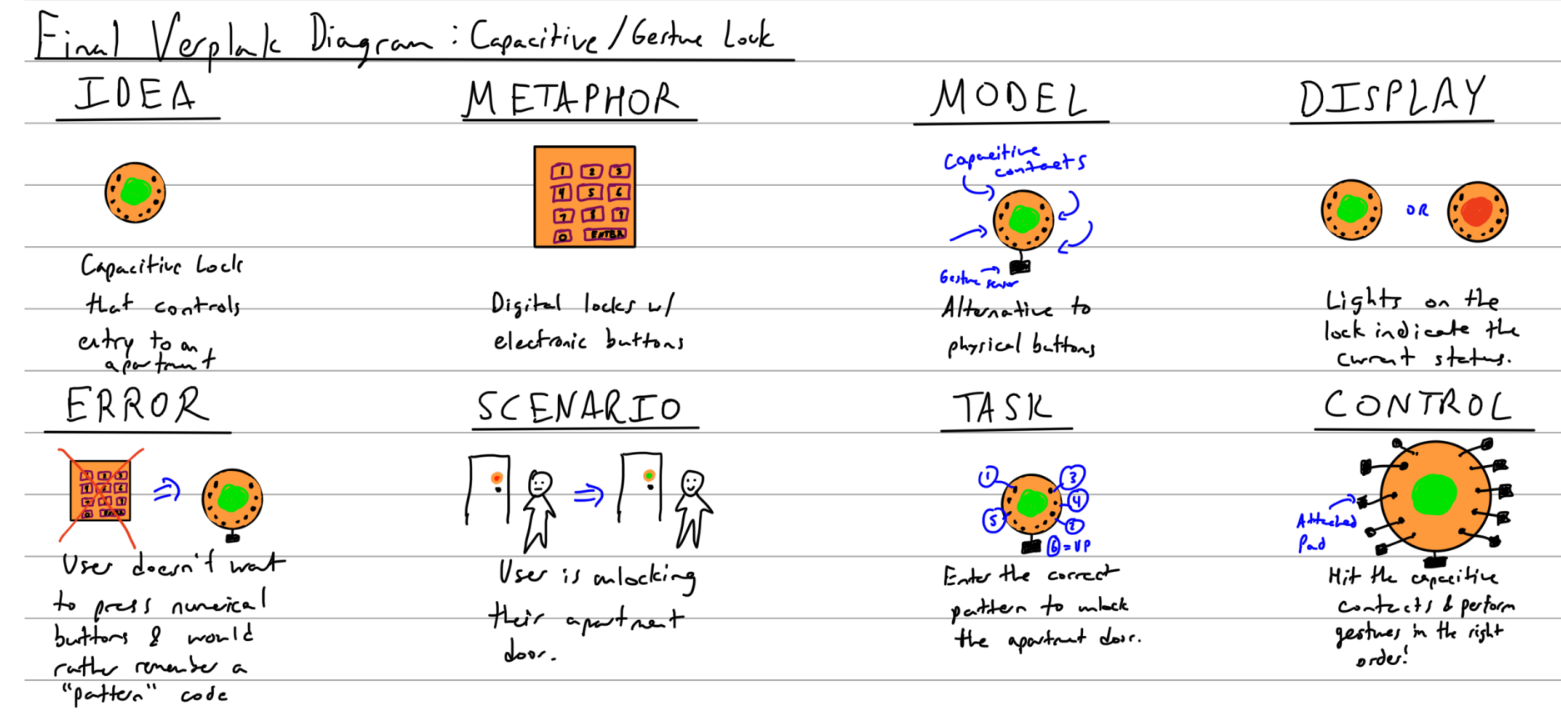 Final Verplak Diagram : Capacitive/Gesture Lock
IDEA
Capacitive Lock
that controls
entry to an
apartment
METAPHOR
1 2 3
4 5 6
7 8 9
0 ENTER
Digital locks w/
electronic buttons
MODEL
Capacitive
contacts
Gesture sensor
Alternative to
physical buttons
DISPLAY
OR
Lights on the
lock indicate the
current status.
ERROR
User doesn't want
to press numerical
buttons & would
rather remember a
"pattern" code
SCENARIO
User is unlocking
their apartment
door.
TASK
1 3
4
5 2
6 = UP
Enter the correct
pattern to unlock
the apartment door.
CONTROL
Attached
Pad
Hit the capacitive
contacts & perform
gestures in the right
order!